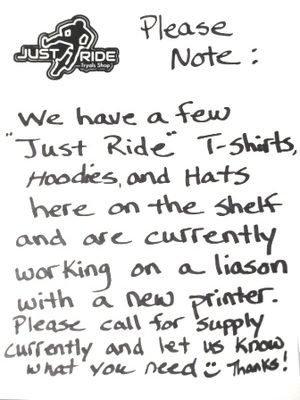 JUST RIDE
Tryals Shop
Please
Note:
We have a few
"Just Ride" T-shirts,
Hoodies, and Hats
here on the shelf
and are currently
working on a liason
with a new printer.
Please call for supply
currently and let us know
what you need☺ Thanks!